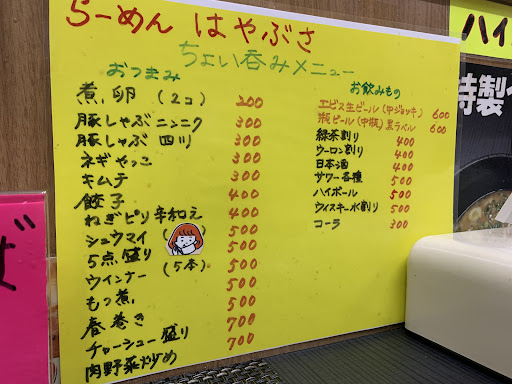 らーめん はやぶさ
ちょい呑みメニュー
おつまみ
煮卵 (2コ) 200
豚しゃぶニンニク 300
豚しゃぶ 四川 300
ネギやっこ 300
キムチ 300
餃子 400
ねぎピリ辛和え 400
シュウマイ ( 500
5点盛り 500
ウインナー (5本) 500
もつ煮 500
春巻き 500
チャーシュー盛り 700
肉野菜炒め 700
お飲みもの
エビス生ビール (中ジョッキ) 600
瓶ビール (中瓶) 黒ラベル 600
緑茶割り 400
ウーロン割り 400
日本酒 400
サワー各種 500
ハイボール 500
ウィスキー水割り 500
コーラ 300
ハイ
特製
ば